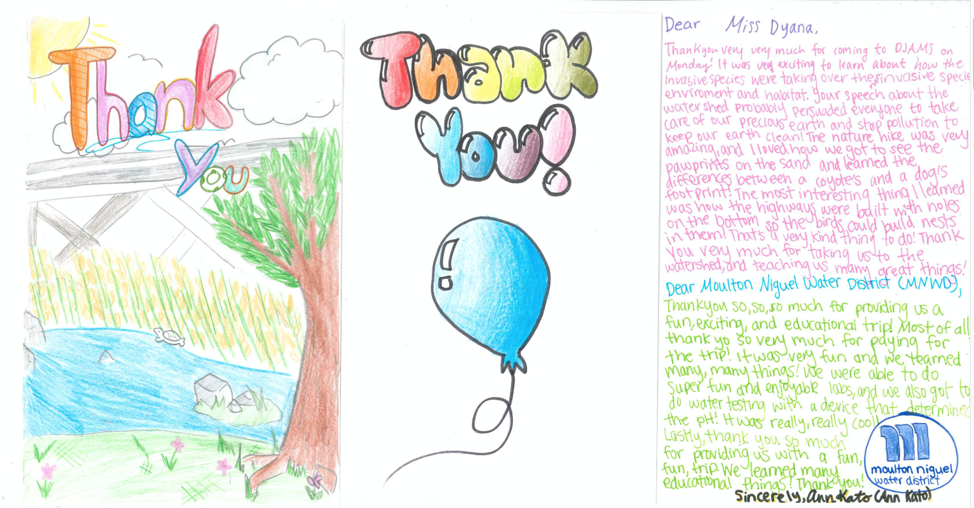 Thank
you
Thank
You!
Dear Miss Dyana,
Thank you very very much for coming to DJAMS on
Monday! It was very exciting to learn about how the
invasive species were taking over the invasive specie
enviroment and habitat. Your speech about the
watershed probably persuaded everyone to take
care of our precious earth and stop pollution to
keep our earth clean! The nature hike was very
amazing, and I loved how we got to see the
pawprints on the sand and learned the
differences between a coyote's and a dog's
footprint! The most interesting thing I learned
was how the highways were bailt with holes
on the bottom so the birds could build nests
in them! That's a very kind thing to do! Thank
you very much for taking us to the
watershed, and teaching us many great things!
Dear Moulton Niguel Water District (MNWD),
Thankyou so, so, so much for providing us a
fun, exciting, and educational trip! Most of all
thank yo so very much for paying for
the trip! It was very fun and we learned
many, many things! We were able to do
super fun and enjoyable labs, and we also got to
do water testing with a device that determines
the pH! It was really, really cool!
Lastly, thank you so much
for providing us with a fun,
fun, trip. We learned many
educational things! Thank you!
moulton niguel
water district
Sincerely, Ann Kato (Ann Kato)